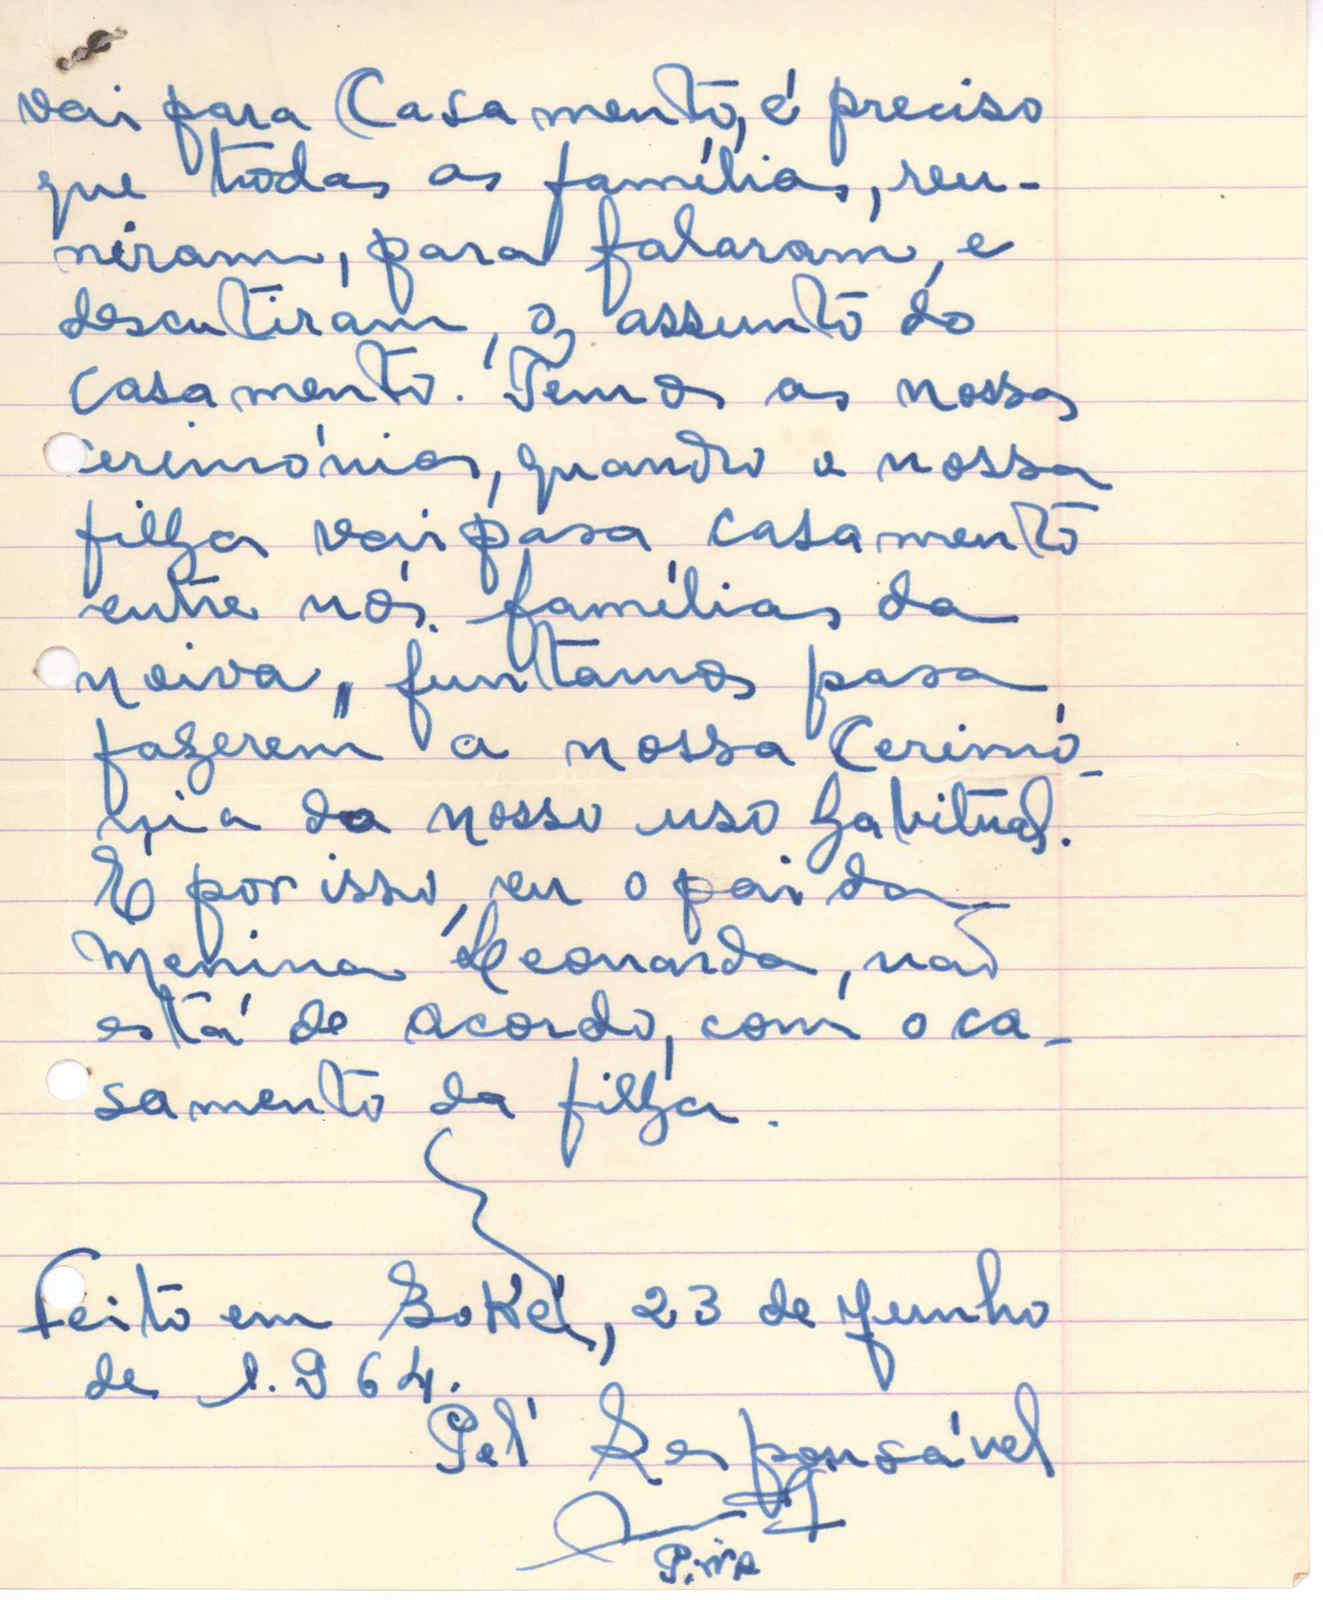 vai para Casamento, é preciso
que todas as famílias, reu-
niram, para falaram, e
descutiram, o, assunto do
casamento. Temos as nossas
cerimónias, quando a nossa
filha vai para casamento
entre nós. famílias da
noiva, juntamos para
fazerem a nossa Cerimó-
nia do nosso uso habitual.
E por isso, eu o pai da
Menina Leonarda, não
está de acordo, com o ca-
samento da filha.
Feito em Boké, 23 de Junho
de 1.964.
Pel' Responsável